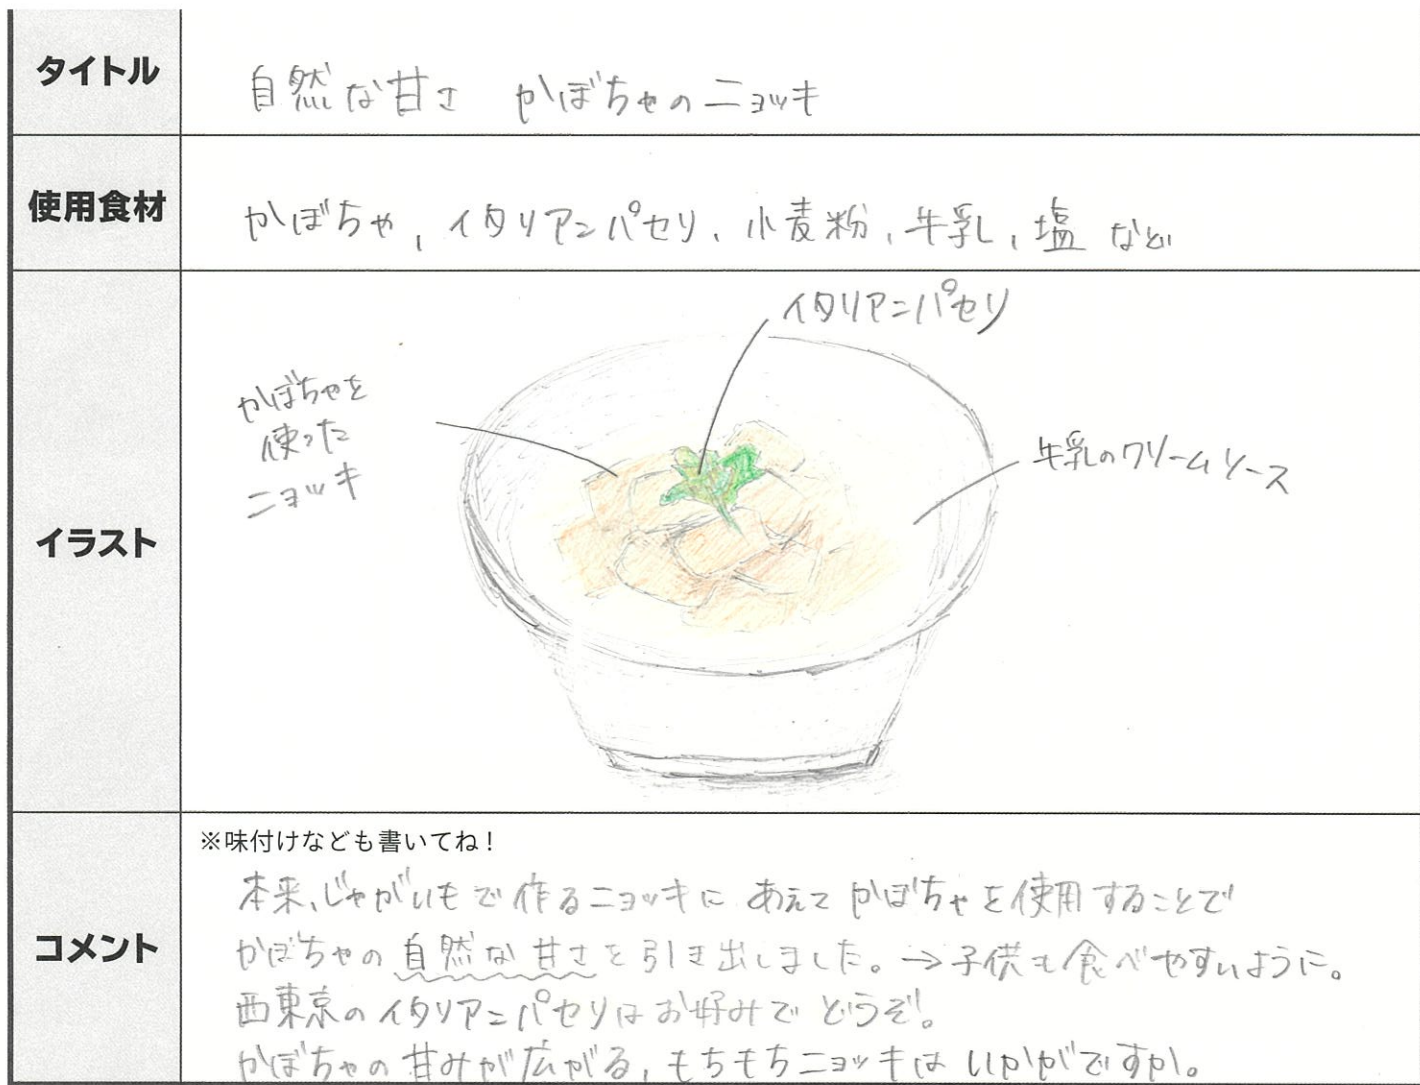 タイトル
自然な甘さ かぼちゃのニョッキ
使用食材
かぼちゃ、イタリアンパセリ、小麦粉、牛乳、塩 など
イラスト
イタリアンパセリ
かぼちゃを
使った
ニョッキ
牛乳のクリームソース
コメント
※味付けなども書いてね！
本来、じゃがいもで作るニョッキに あえて かぼちゃを使用することで
かぼちゃの自然な甘さを引き出しました。→子供も食べやすいように。
西東京のイタリアンパセリはお好みで どうぞ。
かぼちゃの甘みが広がる、もちもちニョッキは いかがですか。